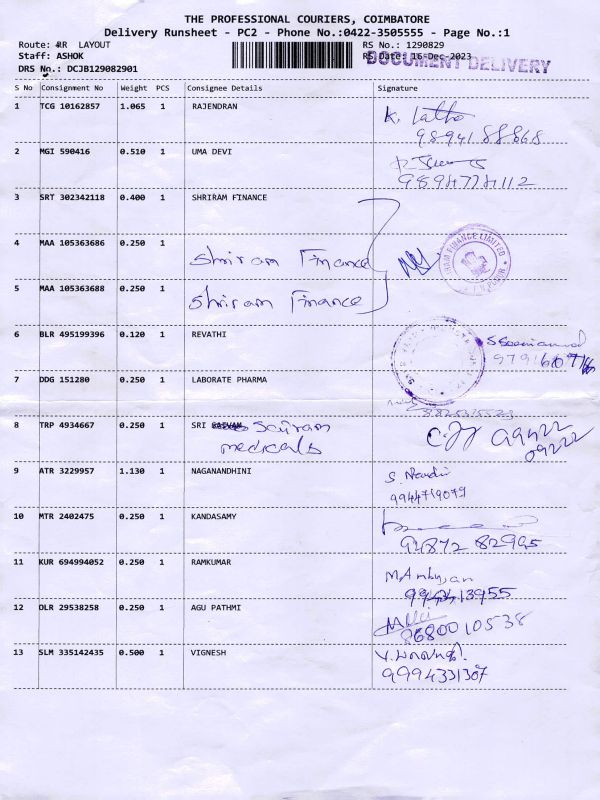 THE PROFESSIONAL COURIERS, COIMBATORE
Delivery Runsheet - PC2 - Phone No.:0422-3505555 - Page No.:1
Route: RR LAYOUT RS No.: 1290829
Staff: ASHOK RS Date: 16-Dec-2023
DOCUMENT DELIVERY
DRS No.: DCJB129082901
S No Consignment No Weight PCS Consignee Details Signature
1 TCG 10162857 1.065 1 RAJENDRAN K. Latha
98941 88868
2 MGI 590416 0.510 1 UMA DEVI
9894774112
3 SRT 302342118 0.400 1 SHRIRAM FINANCE
4 MAA 105363686 0.250 1 Shriram Finance
FINANCE LIMITED
5 MAA 105363688 0.250 1 Shriram Finance
6 BLR 495199396 0.120 1 REVATHI
7 DDG 151280 0.250 1 LABORATE PHARMA
8 TRP 4934667 0.250 1 SRI Sairam
medicals
99422
09222
9 ATR 3229957 1.130 1 NAGANANDHINI S. Nandi
9944719079
10 MTR 2402475 0.250 1 KANDASAMY
94872 82995
11 KUR 694994052 0.250 1 RAMKUMAR
12 DLR 29538258 0.250 1 AGU PATHMI
8680010538
13 SLM 335142435 0.500 1 VIGNESH
9994331307